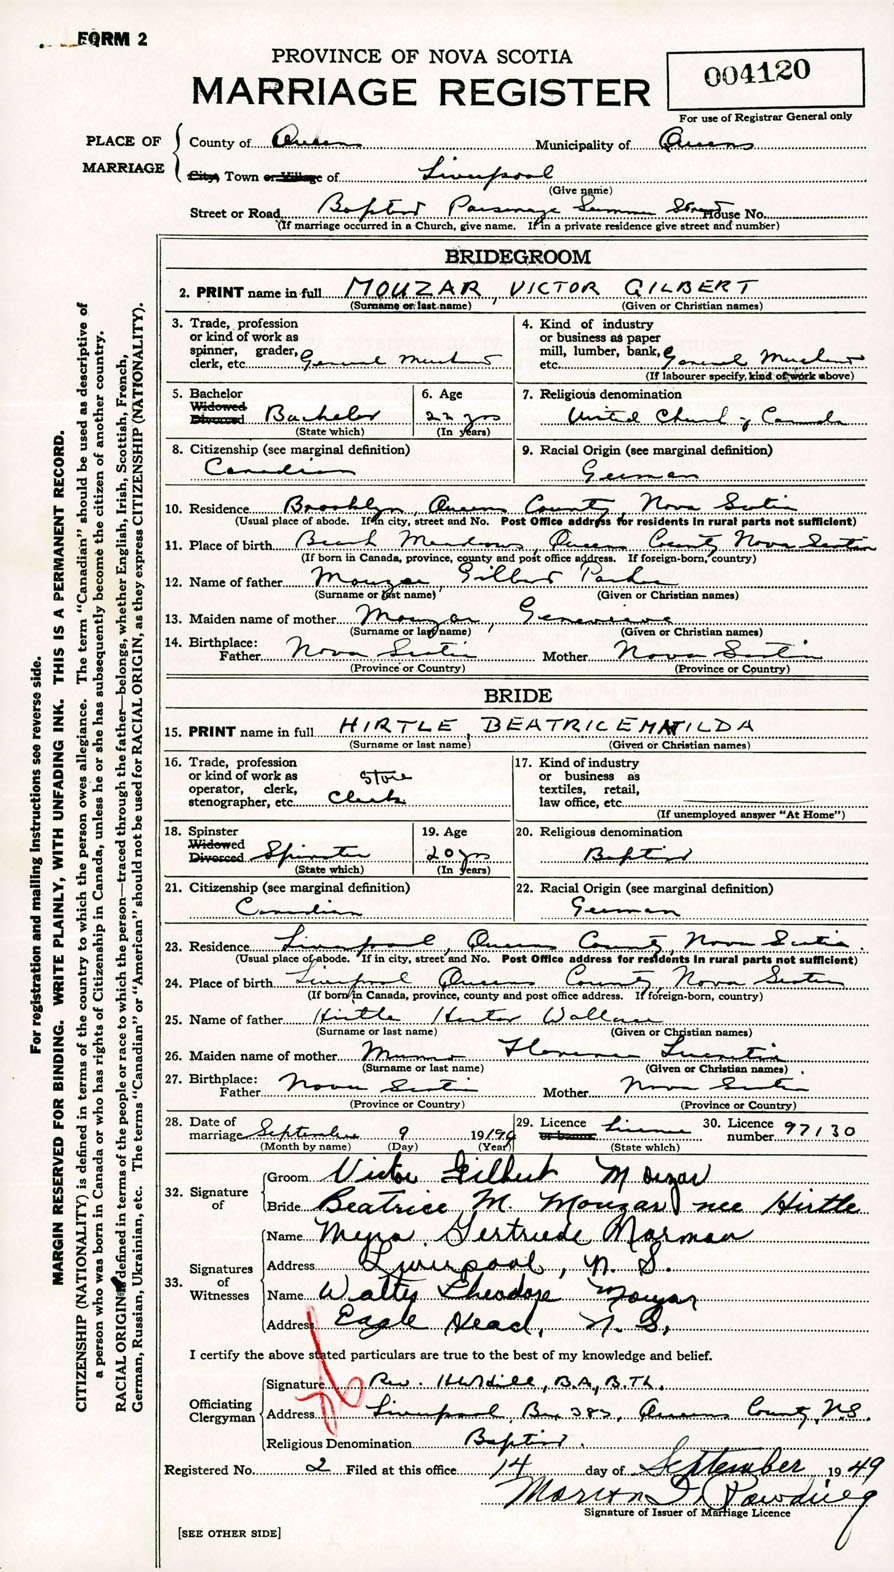 FORM 2
PROVINCE OF NOVA SCOTIA
MARRIAGE REGISTER
004120
For use of Registrar General only
PLACE OF MARRIAGE
County of Queens Municipality of Queens
City, Town or Village of Liverpool
(Give name)
Street or Road Baptist Parsonage Summer Street House No.
(If marriage occurred in a Church, give name. If in a private residence give street and number)
BRIDEGROOM
2. PRINT name in full MOUZAR, VICTOR GILBERT
(Surname or last name) (Given or Christian names)
3. Trade, profession or kind of work as spinner, grader, clerk, etc. General Merchant
4. Kind of industry or business as paper mill, lumber, bank, etc. General Merchant
(If labourer specify, kind of work above)
5. Bachelor Widowed Divorced Bachelor
(State which)
6. Age 22 yrs
(In years)
7. Religious denomination
United Church of Canada
8. Citizenship (see marginal definition)
Canadian
9. Racial Origin (see marginal definition)
German
10. Residence Brooklyn, Queens County, Nova Scotia
(Usual place of abode. If in city, street and No. Post Office address for residents in rural parts not sufficient)
11. Place of birth Beach Meadows, Queens County Nova Scotia
(If born in Canada, province, county and post office address. If foreign-born, country)
12. Name of father Mouzar Gilbert Parker
(Surname or last name) (Given or Christian names)
13. Maiden name of mother Mouzar, Genevieve
(Surname or last name) (Given or Christian names)
14. Birthplace: Father Nova Scotia Mother Nova Scotia
(Province or Country) (Province or Country)
BRIDE
15. PRINT name in full HIRTLE, BEATRICE MATILDA
(Surname or last name) (Given or Christian names)
16. Trade, profession or kind of work as operator, clerk, stenographer, etc. Store Clerk
17. Kind of industry or business as textiles, retail, law office, etc.
(If unemployed answer "At Home")
18. Spinster Widowed Divorced Spinster
(State which)
19. Age 20 yrs
(In years)
20. Religious denomination
Baptist
21. Citizenship (see marginal definition)
Canadian
22. Racial Origin (see marginal definition)
German
23. Residence Liverpool, Queens County, Nova Scotia.
(Usual place of abode. If in city, street and No. Post Office address for residents in rural parts not sufficient)
24. Place of birth Liverpool Queens County, Nova Scotia
(If born in Canada, province, county and post office address. If foreign-born, country)
25. Name of father Hirtle Hector Wallace
(Surname or last name) (Given or Christian names)
26. Maiden name of mother Munro Florence
(Surname or last name) (Given or Christian names)
27. Birthplace: Father Nova Scotia Mother Nova Scotia
(Province or Country) (Province or Country)
28. Date of marriage September 9 19
(Month by name) (Day) (Year)
29. Licence or banns License
(State which)
30. Licence number 97130
32. Signature of
Groom Victor Gilbert Mouzar
Bride Beatrice M. Mouzar nee Hirtle
33. Signatures of Witnesses
Name Myra Gertrude Marman
Address Liverpool, N. S.
Name Walter Theodore Mouzar
Address Eagle Head, N. S.
I certify the above stated particulars are true to the best of my knowledge and belief.
Officiating Clergyman
Signature Rev. B.A., B.Th.
Address Liverpool, Box 383, Queens County, N.S.
Religious Denomination Baptist.
Registered No. 2 Filed at this office 14 day of September 1949
Marion
Signature of Issuer of Marriage Licence
[SEE OTHER SIDE]
For registration and mailing instructions see reverse side.
MARGIN RESERVED FOR BINDING. WRITE PLAINLY, WITH UNFADING INK. THIS IS A PERMANENT RECORD.
CITIZENSHIP (NATIONALITY) is defined in terms of the country to which the person owes allegiance. The term "Canadian" should be used as descriptive of
a person who was born in Canada or who has rights of Citizenship in Canada, unless he or she has subsequently become the citizen of another country.
RACIAL ORIGIN is defined in terms of the people or race to which the person—traced through the father—belongs, whether English, Irish, Scottish, French,
German, Russian, Ukrainian, etc. The terms "Canadian" or "American" should not be used for RACIAL ORIGIN, as they express CITIZENSHIP (NATIONALITY).